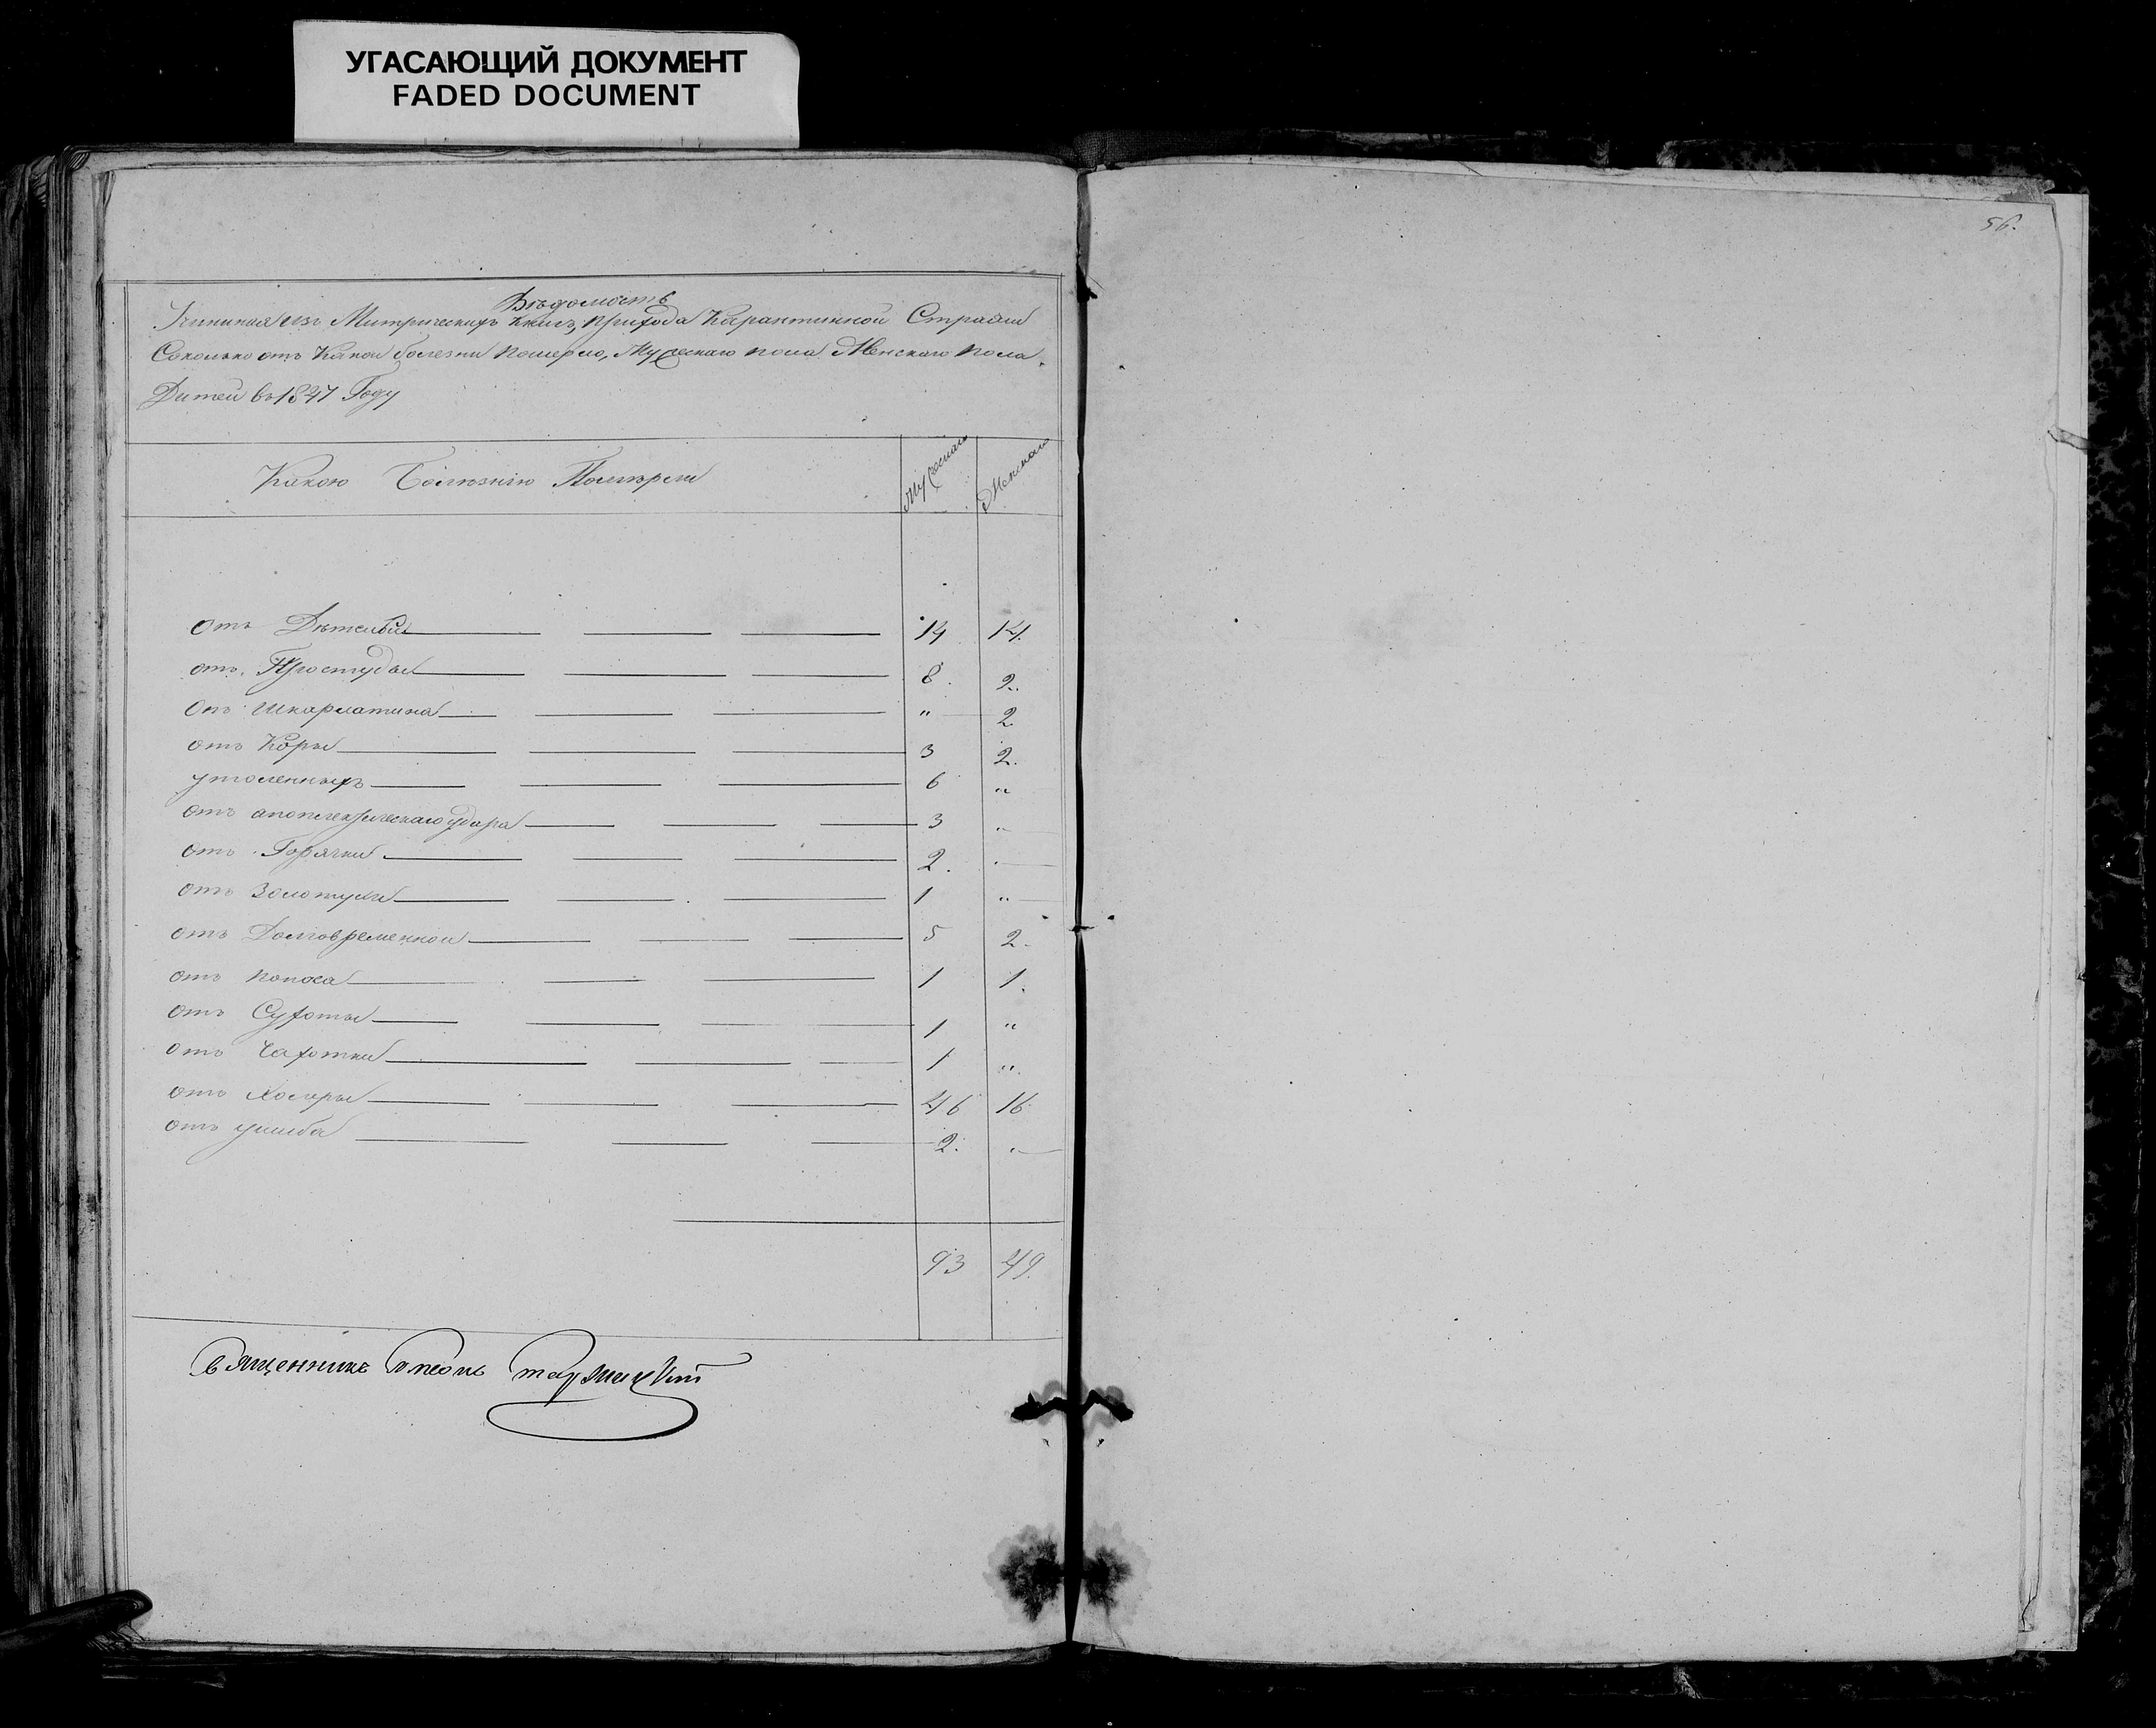 УГАСАЮЩИЙ ДОКУМЕНТ
FADED DOCUMENT
56.
Вѣдомость
Учиненая изъ Митрическихъ Книгъ, прихода Карантинной Стражи
Сколько отъ Какой болезни померло, Мужескаго пола Женскаго пола
Дитей въ 1847 Году
Какою Болѣзнію Померли Мужескаго Женскаго
Отъ Дѣтской 14 14.
отъ Простуды 8. 2.
Отъ Шкарлатина " 2
отъ Коры 3 2.
утопленныхъ 6 "
отъ апоплексическаго удара 3 "
отъ Горячки 2. "
отъ Золотухи 1 "
отъ Долговременной 5 2.
отъ Поноса 1 1.
отъ Сухоты 1 "
отъ Чахотки 1 "
отъ Холеры 46 16
отъ ушиба 2. "
93 49.
Священникъ